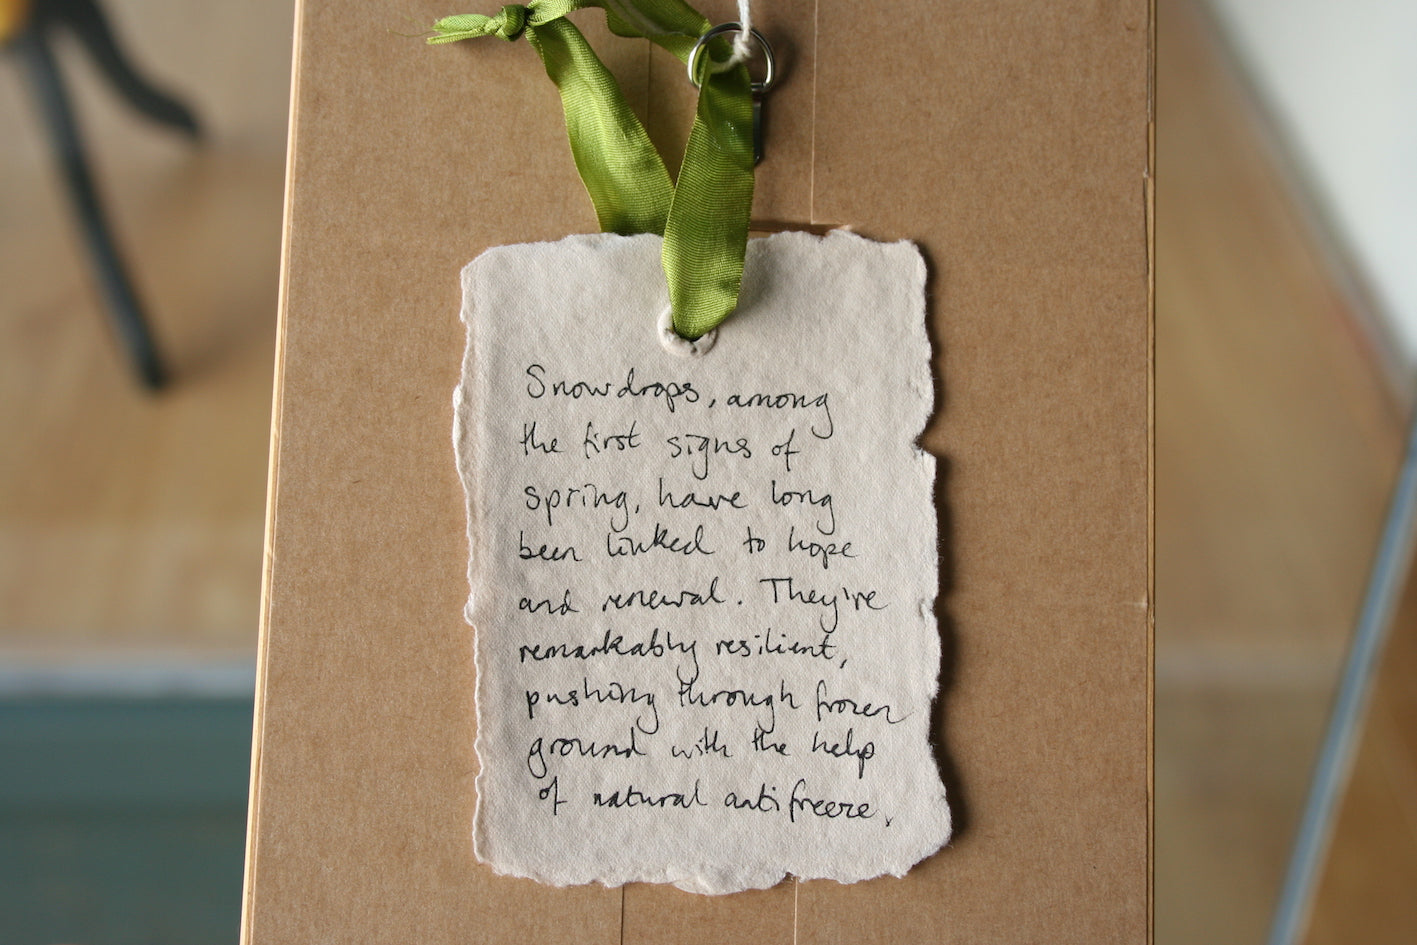 Snowdrops, among
the first signs of
spring, have long
been linked to hope
and renewal. They're
remarkably resilient,
pushing through frozen
ground with the help
of natural antifreeze.